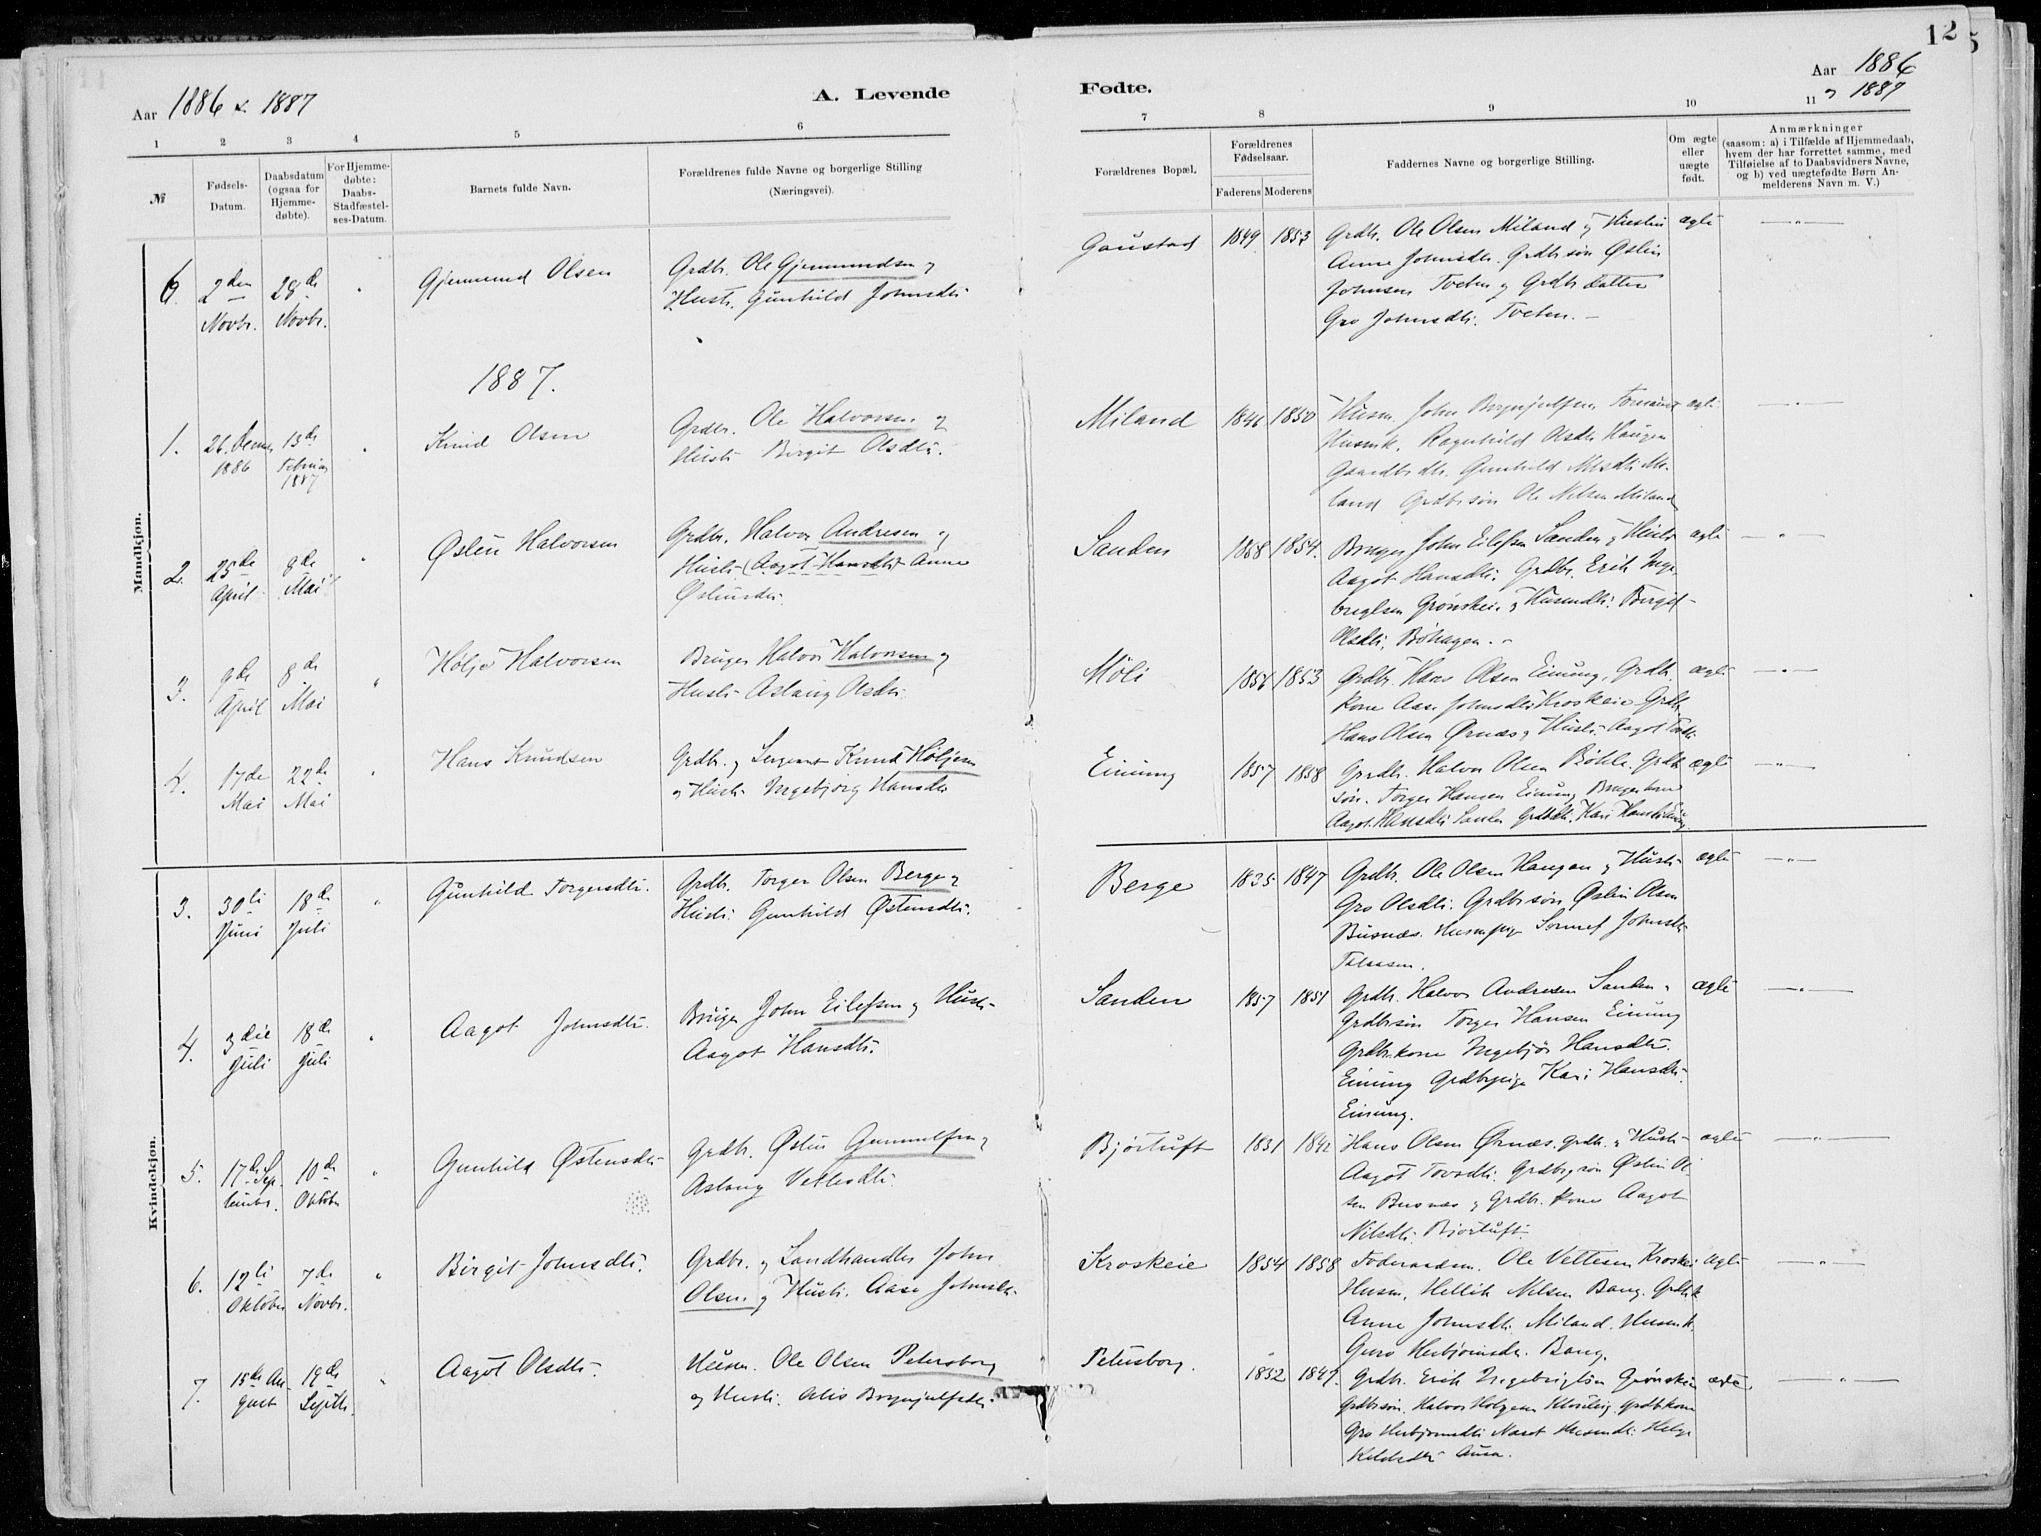 12
5
Aar 1886 & 1887
A. Levende
Fødte.
Aar 1886
1887
1 2 3 4 5 6
7 8 9 10 11
№
Fødsels-
Datum.
Daabsdatum
(ogsaa for
Hjemme-
døbte).
For Hjemme-
døbte:
Daabs-
Stadfæstel-
ses-Datum.
Barnets fulde Navn.
Forældrenes fulde Navne og borgerlige Stilling
(Næringsvei).
Forældrenes Bopæl.
Forældrenes
Fødselsaar.
Faderens Moderens
Faddernes Navne og borgerlige Stilling.
Om ægte
eller
uægte
født.
Anmærkninger
(saasom: a) i Tilfælde af Hjemmedaab,
hvem der har forrettet samme, med
Tilføielse af to Daabsvidners Navne,
og b) ved uægtefødte Børn An-
melderens Navn m. V.)
Mandkjøn.
6. 2den Novbr. 28de Novbr. " Gjermund Olsen
Grdbr. Ole Gjermundsen og
Hustr. Gunhild Johnsdtr
Gaustad 1849 1853
Grdbr. Ole Olsen Miland og Hustru
Anne Johnsdtr. Grdbr søn Østen
Johnsen Tveten og Grdbr datter
Gro Johnsdtr. Tveten. —
ægte
1887.
1. 26. 1886 13de Februar 1887 " Knud Olsen
Grdbr. Ole Halvorsen og
Hustr Birgit Olsdtr.
Miland 1846 1850
Husm. John Brynjulfsen
Husmk. Ragnhild Olsdtr Haugen
Gaardbr dtr. Gunhild Nilsdtr Mi-
land Grdbr søn Ole Nilsen Miland
ægte
2. 25de April 8de Mai " Østen Halvorsen
Grdbr. Halvor Andresen og
Hustr (Aagot Hansdtr) Anne
Østensdtr.
Sanden 1858 1854.
Bruger John Eilefsen Sanden og Hustr
Aagot Hansdtr. Grdbr. Erik Inge-
brigtsen Grønskei og Husmdtr. Birgit
Olsdtr. Bøhagen. —
ægte
3. 9de April 8de Mai " Høljo Halvorsen
Bruger Halvor Halvorsen og
Hustr Aslaug Olsdtr.
Møli 1853
Grdbr. Hans Olsen Einung, Grdb.
kone Aase Johnsdtr Kroskeie Grdbr.
Hans Olsen Ørnæs og Hustr. Aagot
ægte
4. 17de Mai 22de Mai " Hans Knudsen
Grdbr. og Sergeant Knud Høljesen
og Hustr Ingebjørg Hansdtr
Einung 1857 1858
Grdbr. Halvor Olsen Bøhle. Grdb
søn. Torger Hansen Einung Brugerkone
Aagot Hansdtr Sanden Grdbdtr. Kari Hansdtr Einung
ægte
Kvindekjøn.
3. 30te Juni 18de Juli " Gunhild Torgersdtr.
Grdbr. Torger Olsen Berge og
Hustr. Gunhild Østensdtr.
Berge 1835 1847
Grdbr. Ole Olsen Haugan og Hustr
Gro Olsdtr. Grdbr søn Østen Olsen
Busnæs. Husmpige Sønnef Johnsdtr
ægte
4. 3die Juli 18de Juli " Aagot Johnsdtr.
Bruger John Eilefsen og Hustr
Aagot Hansdtr.
Sanden 1857 1851
Grdbr. Halvor Andresen Sanden.
Grdbrsøn Torger Hansen Einung
Grdbr.kone Ingebjør Hansdtr.
Einung Grdbrpige Kari Hansdtr.
Einung.
ægte
5. 17de Sep- tember. 10de Oktober " Gunhild Østensdtr
Grdbr. Østen Gunnulfsen og
Aslaug Vetlesdtr.
Bjørtuft 1831 1842
Hans Olsen Ørnæs. grdbr. og Hustr
Aagot Tovsdtr. Grdbrsøn Østen Ol-
sen Busnæs og Grdbr. kone Aagot
Nilsdtr. Bjørtuft
ægte
6. 12te Oktober 7de Novbr. " Birgit Johnsdtr.
Grdbr. og Landhandler John
Olsen og Hustr. Aase Johnsdtr
Kroskeie 1854 1858
Føderaadsm. Ole Vetlesen Kroskei
Husm. Hellik Nilsen Bang. Grdbk
Anne Johnsdtr. Miland. Husmk.
Guro Herbjørnsdtr. Bang.
ægte
7. 15de Au- gust 19de Septbr. " Aagot Olsdtr.
Husm. Ole Olsen Petersborg
og Hustr. Brynjulfsdtr.
Petersborg. 1852 1849.
Grdbr. Erik Ingebrigtsen Grønskei
Grdbrsøn. Halvor Grdbkone
Gro Herbjørnsdtr Husmdtr. Helge
ægte